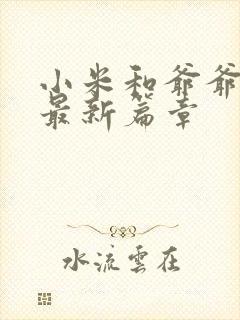 小米和爷爷
最新篇章
水流雲在